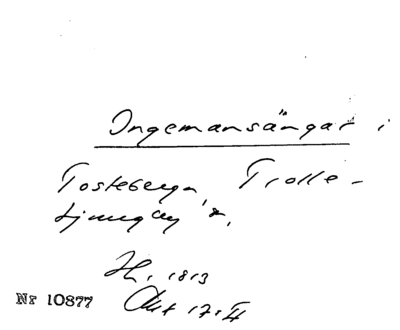 Ingemansängar i
Tosteberga, Trolle-
Ljungby s.
H. 1813
Akt 17. II
Nr 10877